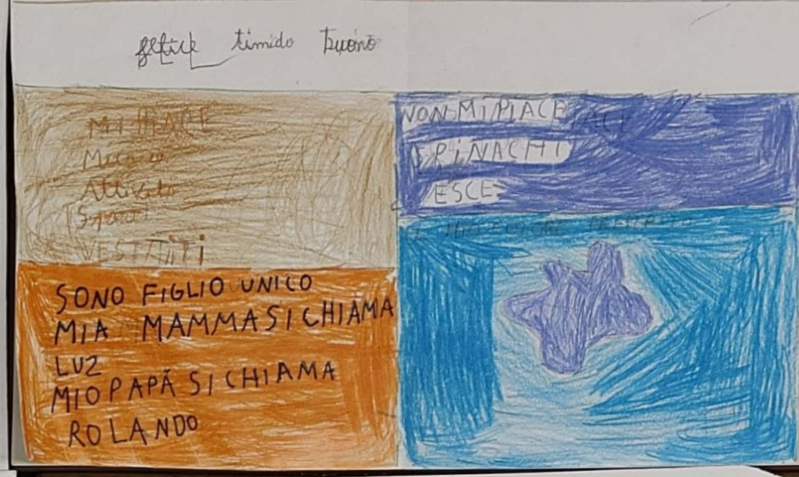 felice timido buono
MI PIACE
Musica
Attività
Sport
VESTITI
NON MI PIACE
SPINACHI
PESCE
SONO FIGLIO UNICO
MIA MAMMA SI CHIAMA
LUZ
MIO PAPÀ SI CHIAMA
ROLANDO